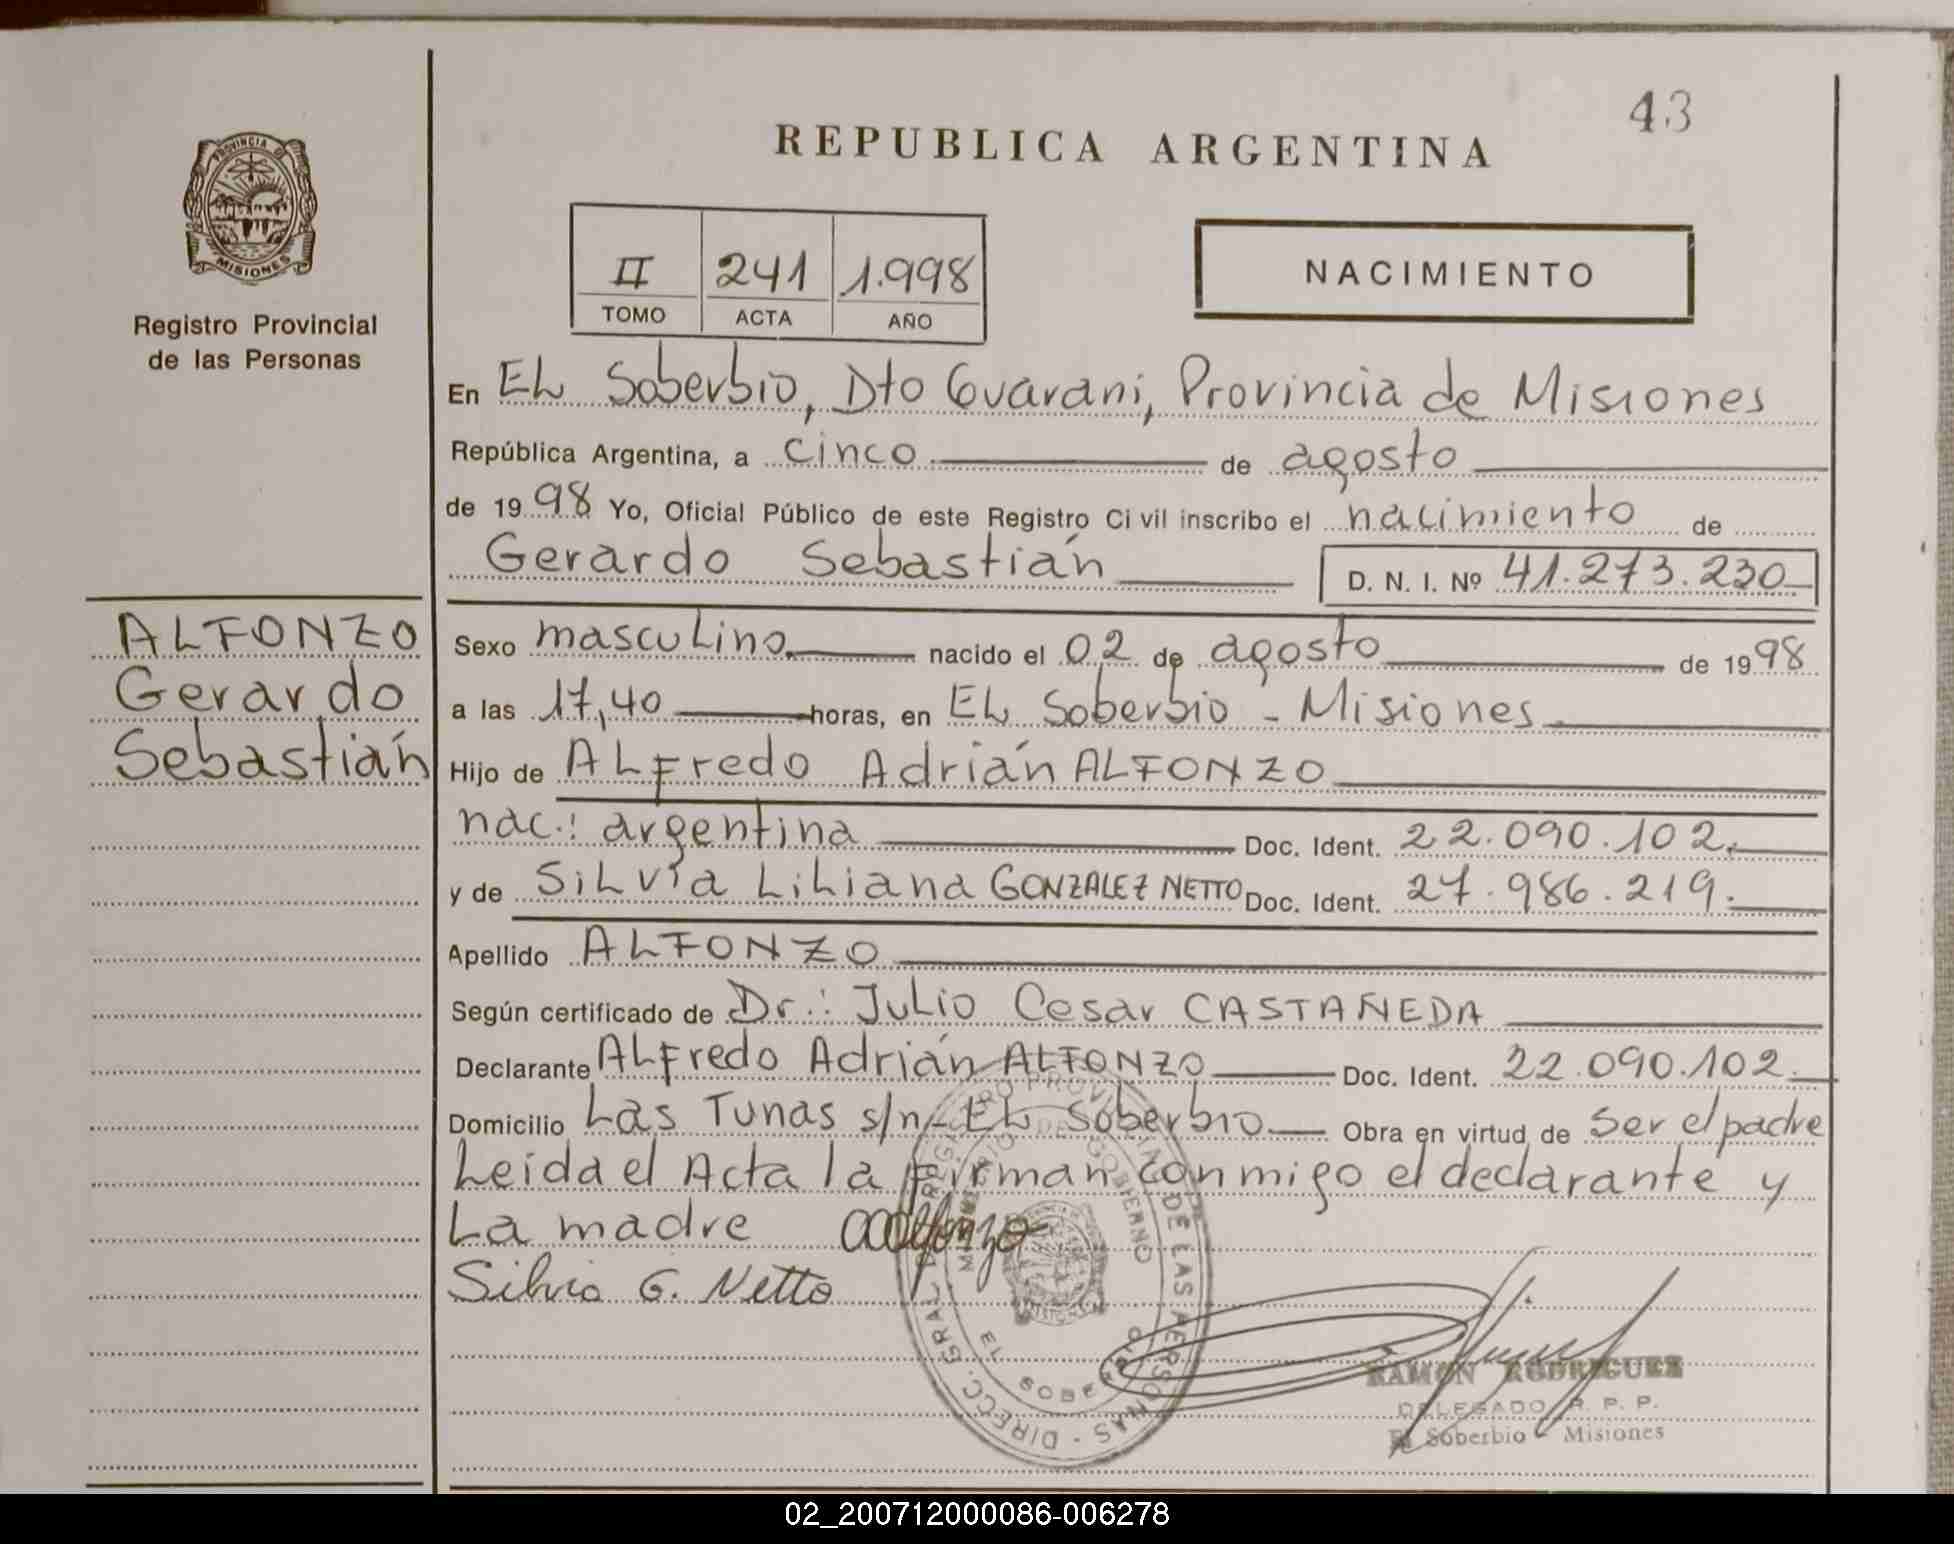 43
REPUBLICA ARGENTINA
PROVINCIA DE
MISIONES
Registro Provincial
de las Personas
II 241 1.998
TOMO ACTA AÑO
NACIMIENTO
En EL Soberbio, Dto Guarani, Provincia de Misiones
República Argentina, a cinco de agosto
de 1998 Yo, Oficial Público de este Registro Civil inscribo el nacimiento de
Gerardo Sebastián D. N. I. Nº 41.273.230
ALFONZO
Gerardo
Sebastián
Sexo masculino nacido el 02 de agosto de 1998
a las 17,40 horas, en EL Soberbio - Misiones
Hijo de ALFredo Adrián ALFONZO
nac.: argentina Doc. Ident. 22.090.102.
y de SiLvia LiLiana GONZALEZ NETTO Doc. Ident. 27.986.219.
Apellido ALFONZO
Según certificado de Dr.: JuLio Cesar CASTAÑEDA
Declarante ALFredo Adrián ALFONZO Doc. Ident. 22.090.102.
Domicilio Las Tunas s/n - EL Soberbio Obra en virtud de ser el padre
Leída el Acta la firman conmigo el declarante y
La madre AAlfonzo
Silvia G. Netto
DIRECC. GRAL. REGISTRO PROVINCIAL DE LAS PERSONAS
MINISTERIO DE GOBIERNO
EL SOBERBIO
RAMON RODRIGUEZ
DELEGADO R. P. P.
El Soberbio - Misiones
02_200712000086-006278